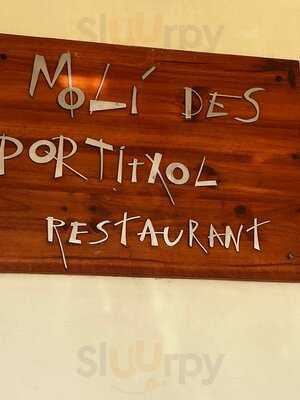 Sluurpy
MOLÍ DES
PORTITXOL
RESTAURANT
Sluurpy